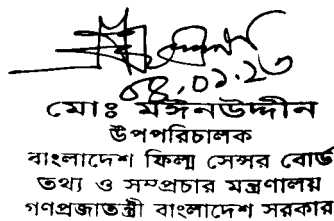 ০৪.০১.২৩
মোঃ মঈনউদ্দীন
উপপরিচালক
বাংলাদেশ ফিল্ম সেন্সর বোর্ড
তথ্য ও সম্প্রচার মন্ত্রণালয়
গণপ্রজাতন্ত্রী বাংলাদেশ সরকার